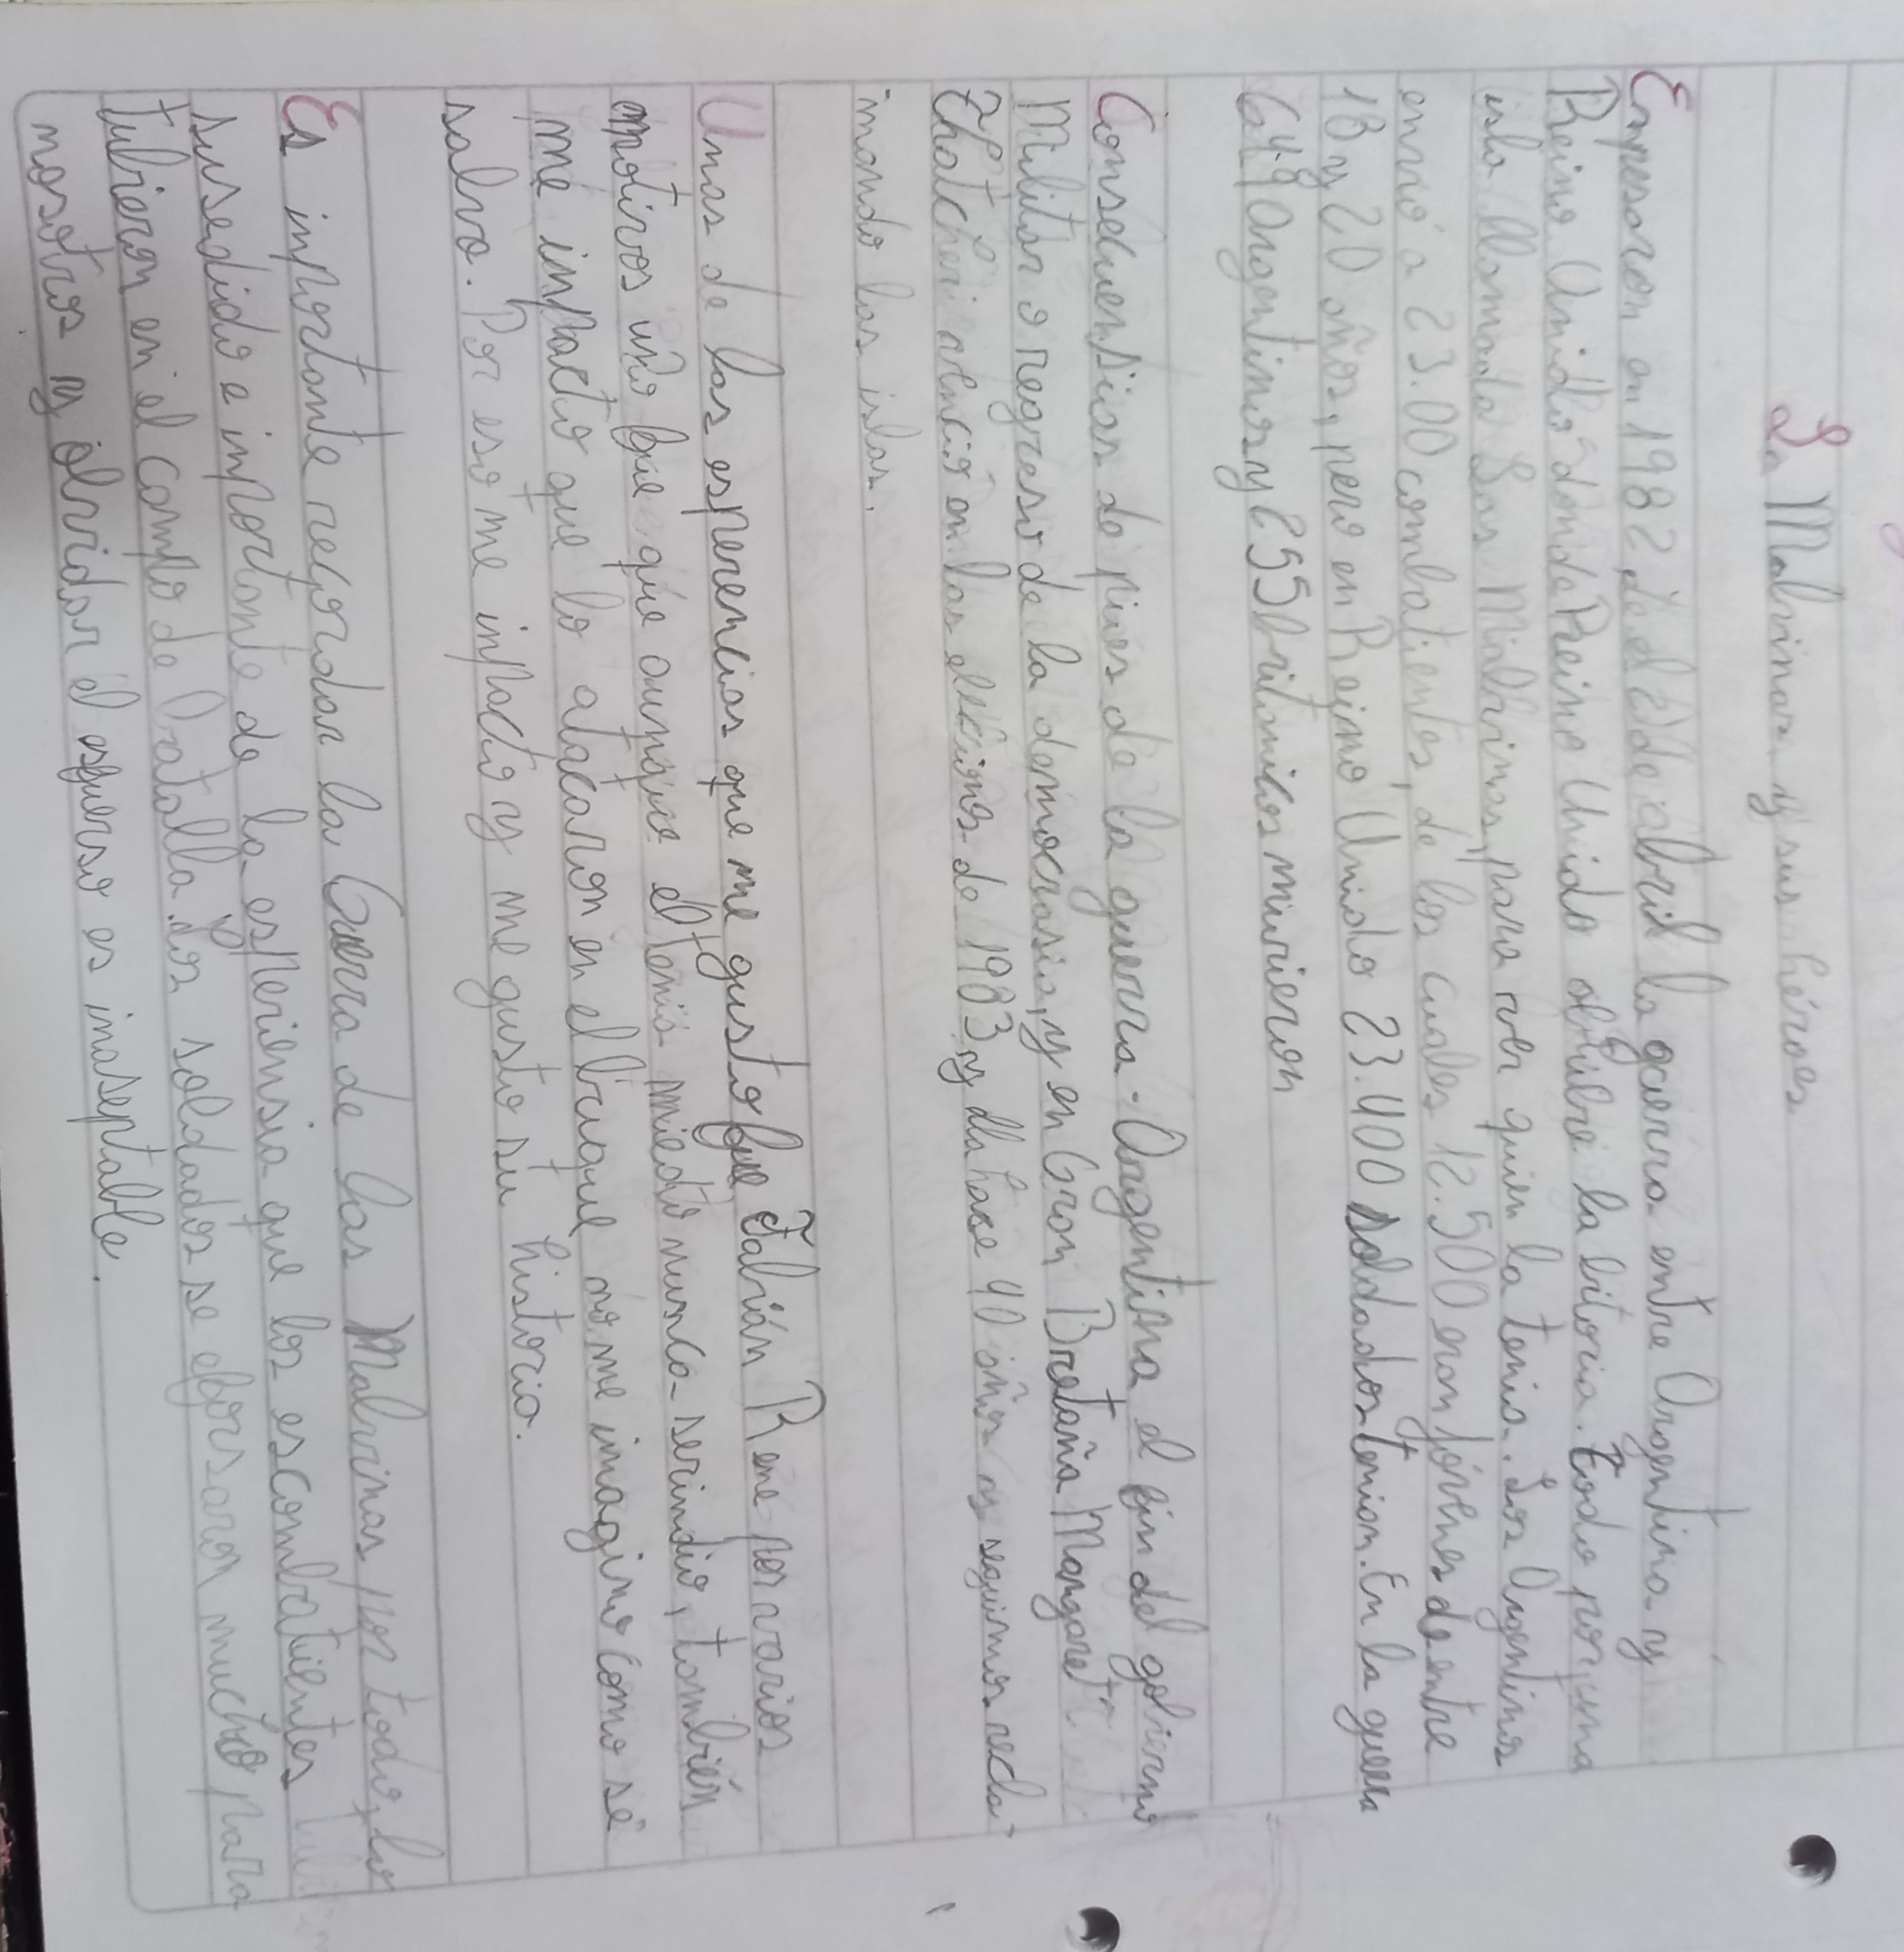 La Malvinas y sus héroes
Empesaron en 1982, 2 de abril la guerra entre Argentina y
Reino Unido donde Reino Unido obtubé la bitoria. Todo por una
isla llamada Las Malvinas, para ver quien la tenia. Los Argentinos
envió a 23.00 combatientes, de los cuales 12.500 eran jóvenes de entre
18 y 20 años, pero en Reino Unido 23.400 soldados tenian. En la guerra
649 argentinos y 255 británicos murieron
Consecuensias de pues de la guerra - Argentina el fin del gobierno
Militar o regreso de la democrasia, y en Gran Bretaña Margaret
Thatcher venció en las elecciones de 1983 y ella hase 40 años y seguimos recla-
mando las islas.
Unas de las esperencias que me gusto fue Fabián Rene por varios
motivos uno fue que aunque el tenia miedo nunca se rindio, también
me inpacto que lo atacaron en el buque no me imagino como se
salvo. Por eso me inpacto y me gusto su historia.
Es inportante recordar la Guerra de las Malvinas por todo lo
susedido e inportante de la esperiensia que los escombatientes
tubieron en el campo de batalla. Los soldados se eforsaron mucho para
nosotros y olvidar el esfuerso es inaseptable.